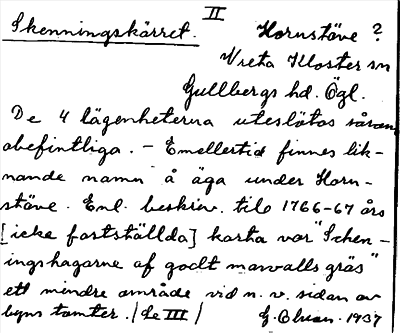 II
Skenningskärret. Hornstäve ?
Vreta Kloster sn
Gullbergs hd. Ögl.
De 4 lägenheterna uteslötos såsom
obefintliga. - Emellertid finnes lik-
nande namn å äga under Horn-
stäve. Enl. beskriv. till 1766-67 års
[icke fastställda] karta var "Schen-
ingshagarne af godt marvalls gräs"
ett mindre område vid n. v. sidan av
byns tomter. (Se III)
1937